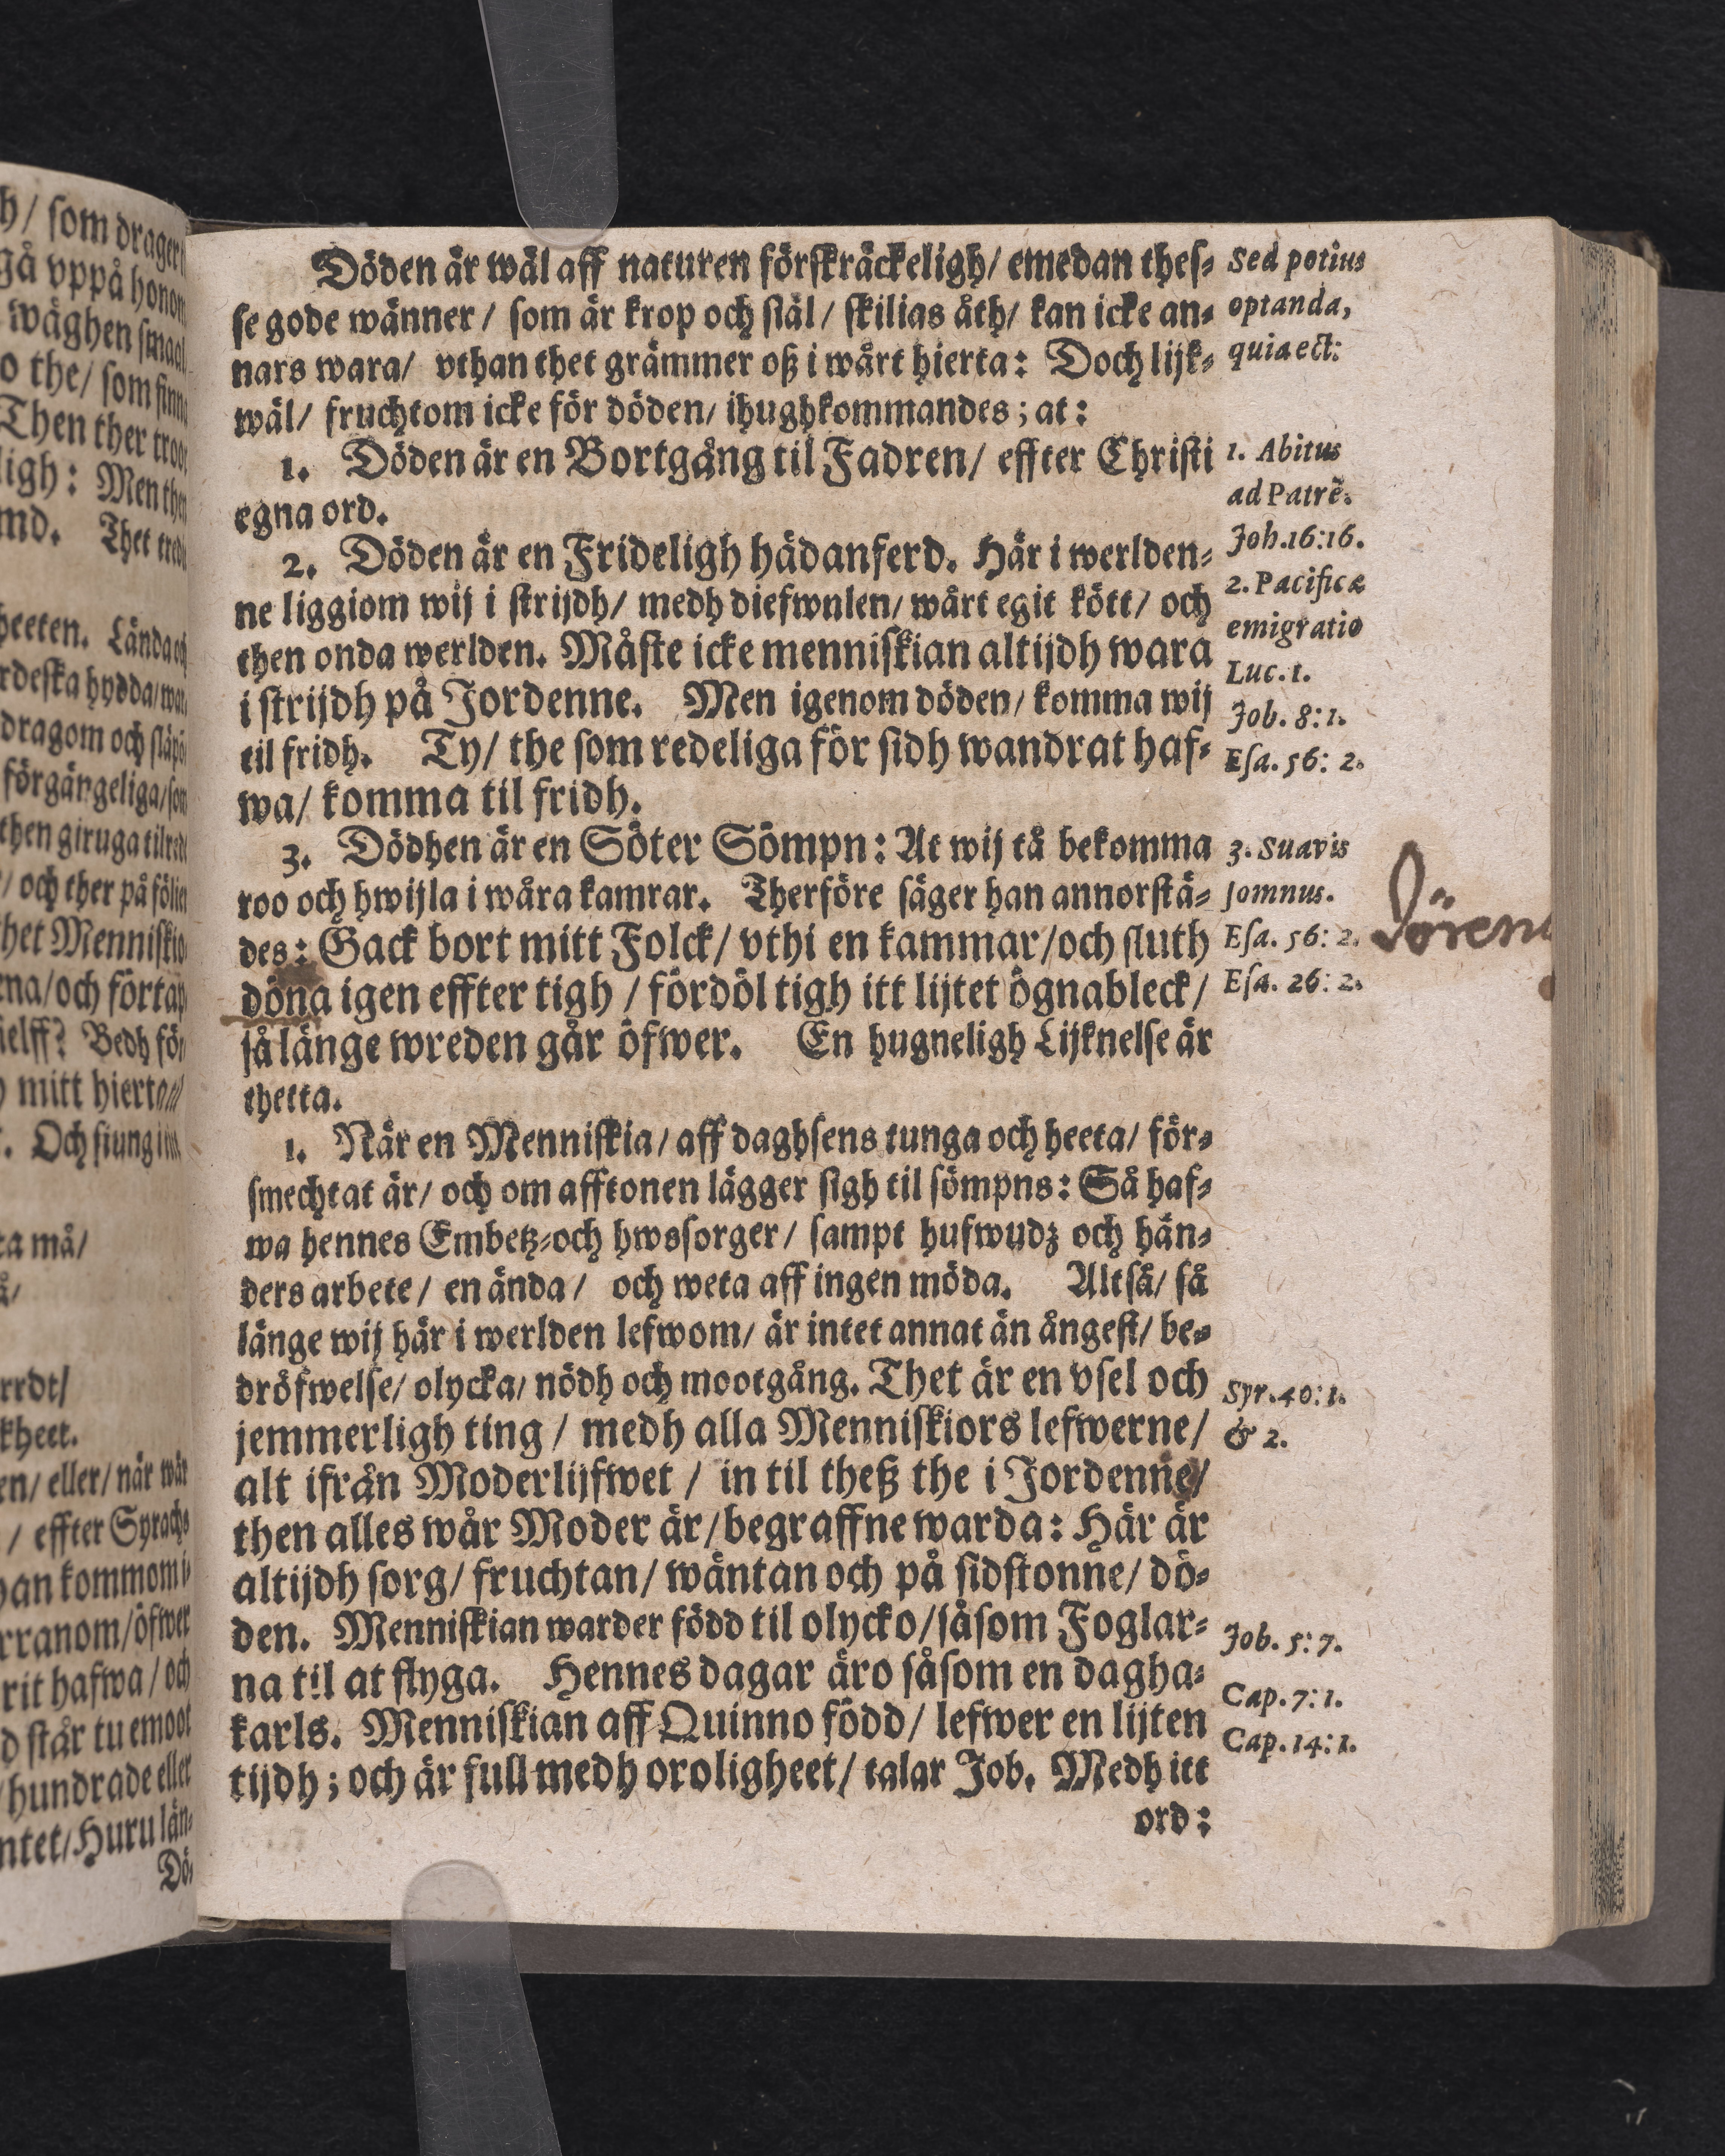 Döden är wäl aff naturen förskräckeligh/ emedan thes-
se gode wänner/ som är krop och siäl/ skilias åth/ kan icke an-
nars wara/ vthan thet grämmer oß i wårt hierta: Doch lijk-
wäl/ fruchtom icke för döden/ ihughkommandes; at:
1. Döden är en Bortgång til Fadren/ effter Christi
egna ord.
2. Döden är en Frideligh hädanferd. Här i werlden-
ne liggiom wij i strijdh/ medh diefwulen/ wårt egit kött/ och
then onda werlden. Måste icke menniskian altijdh wara
i strijdh på Jordenne. Men igenom döden/ komma wij
til fridh. Ty/ the som redeliga för sidh wandrat haf-
wa/ komma til fridh.
3. Dödhen är en Söter Sömpn: At wij tå bekomma
roo och hwijla i wåra kamrar. Therföre säger han annorstä-
des: Gack bort mitt Folck/ vthi en kammar/och sluth
döna igen effter tigh / fördöl tigh itt lijtet ögnableck/
så länge wreden går öfwer. En hugneligh Lijknelse är
thetta.
1. När en Menniskia/ aff daghsens tunga och heeta/ för-
smechtat är/ och om afftonen lägger sigh til sömpns: Så haf-
wa hennes Embetz-och hwssorger/ sampt hufwudz och hän-
ders arbete/ en ända/ och weta aff ingen möda. Altså/ så
länge wij här i werlden lefwom/ är intet annat än ångest/ be-
dröfwelse/ olycka/ nödh och mootgång. Thet är en vsel och
jemmerligh ting / medh alla Menniskiors lefwerne/
alt ifrån Moderlijfwet / in til theß the i Jordenne/
then alles wår Moder är/begraffne warda: Här är
altijdh sorg/ fruchtan/ wäntan och på sidstonne/ dö-
den. Menniskian warder född til olycko/såsom Foglar-
na til at flyga. Hennes dagar äro såsom en dagha-
karls. Menniskian aff Quinno född/ lefwer en lijten
tijdh; och är full medh oroligheet/ talar Job. Medh itt
ord:
Sed potius
optanda,
quia est:
1. Abitus
ad Patrẽ.
Joh.16:16.
2. Pacifica
emigratio
Luc. 1.
Job. 8: 1.
Esa. 56: 2.
3. Suavis
somnus.
Esa. 56: 2.
Esa. 26: 2.
Syr. 40: 1.
& 2.
Job. 5: 7.
Cap. 7: 1.
Cap. 14: 1.